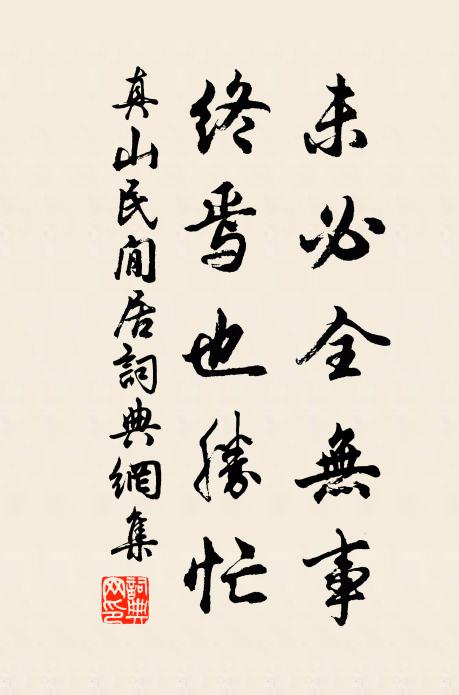 未必全無事
終焉也勝忙
真山民閒居詞典網集
詞典網印